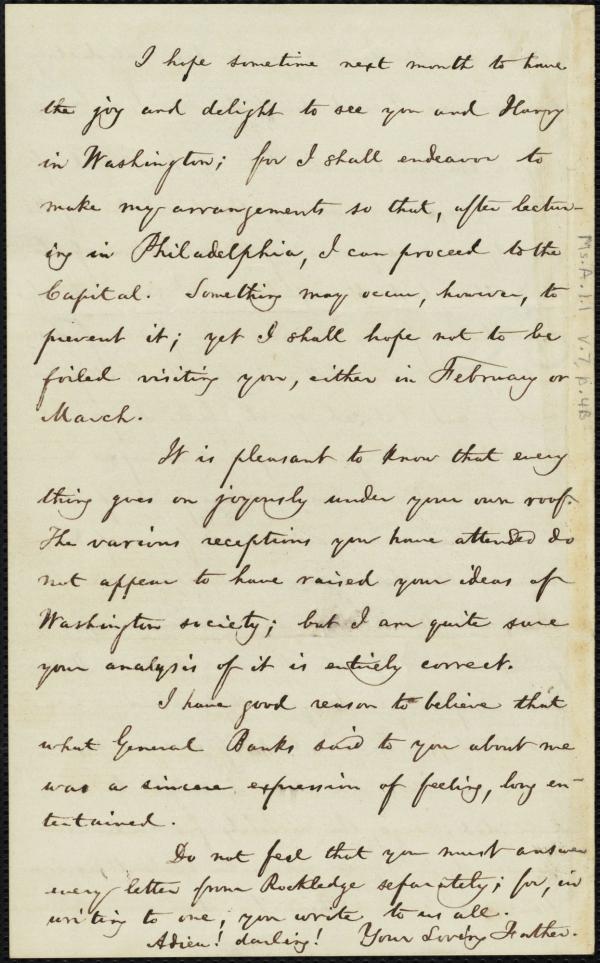 I hope sometime next month to have
the joy and delight to see you and Harry
in Washington; for I shall endeavor to
make my arrangements so that, after lectur-
ing in Philadelphia, I can proceed to the
Capital. Something may occur, however, to
prevent it; yet I shall hope not to be
foiled visiting you, either in February or
March.
It is pleasant to know that every
thing goes on joyously under your own roof.
The various receptions you have attended do
not appear to have raised your ideas of
Washington society; but I am quite sure
your analysis of it is entirely correct.
I have good reason to believe that
what General Banks said to you about me
was a sincere expression of feeling, long en-
tertained.
Do not feel that you must answer
every letter from Rockledge separately; for, in
writing to one, you write to us all.
Adieu! darling! Your Loving Father.
Ms.A.1.1 v.7, p.4B